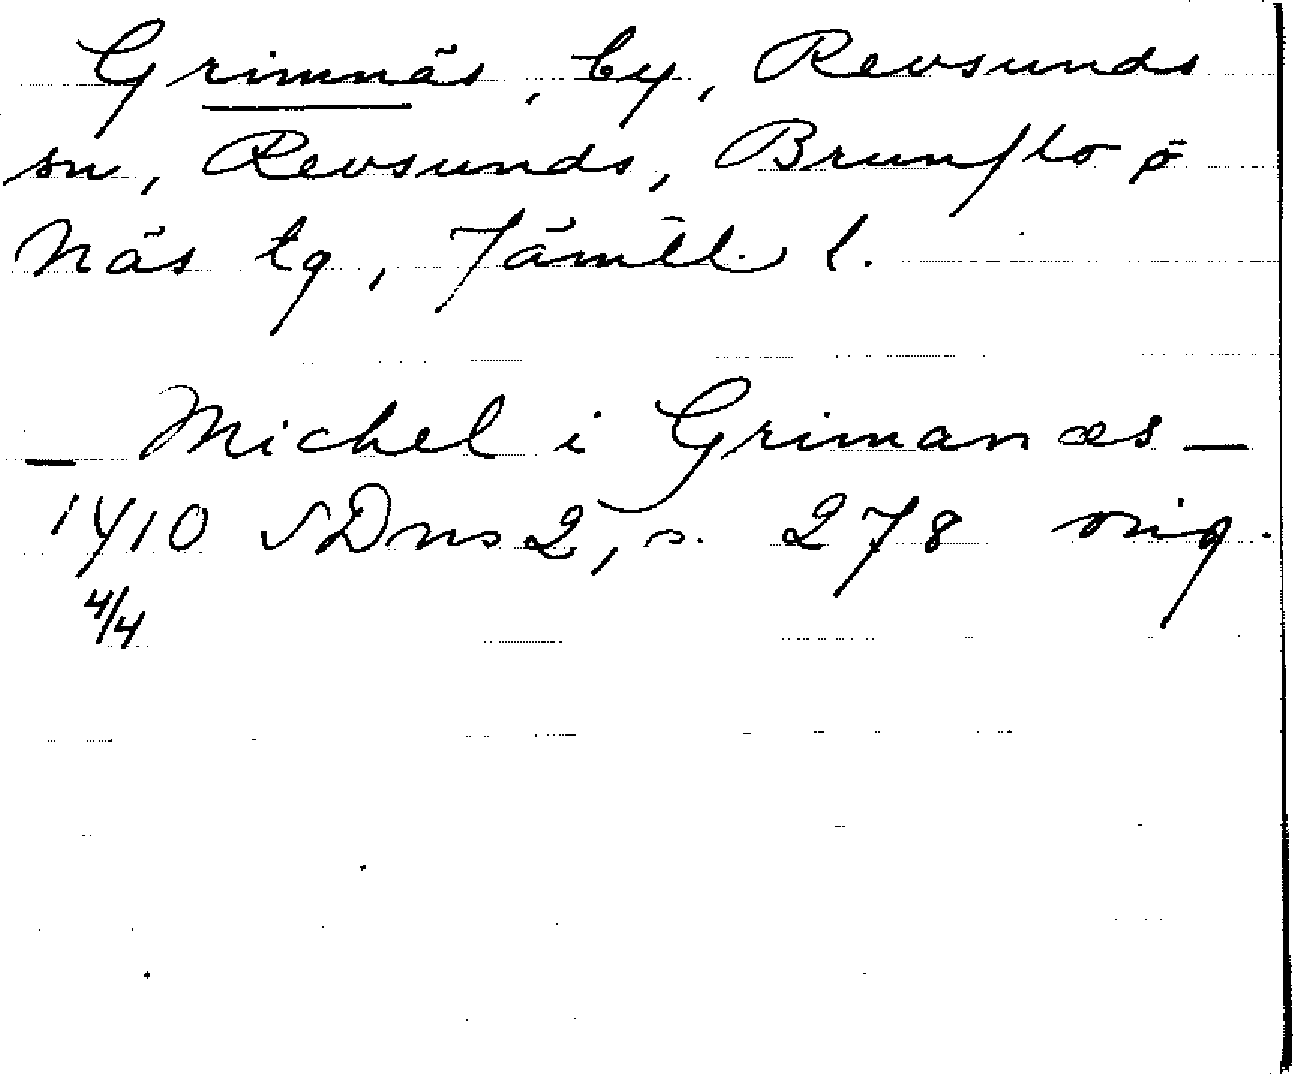 Grimnäs, by, Revsunds
sn, Revsunds, Brunflo o
Näs tg, Jämtl. l.
_ Michel i Grimanæs _
1410 SDns 2, s. 278 orig.
4/4